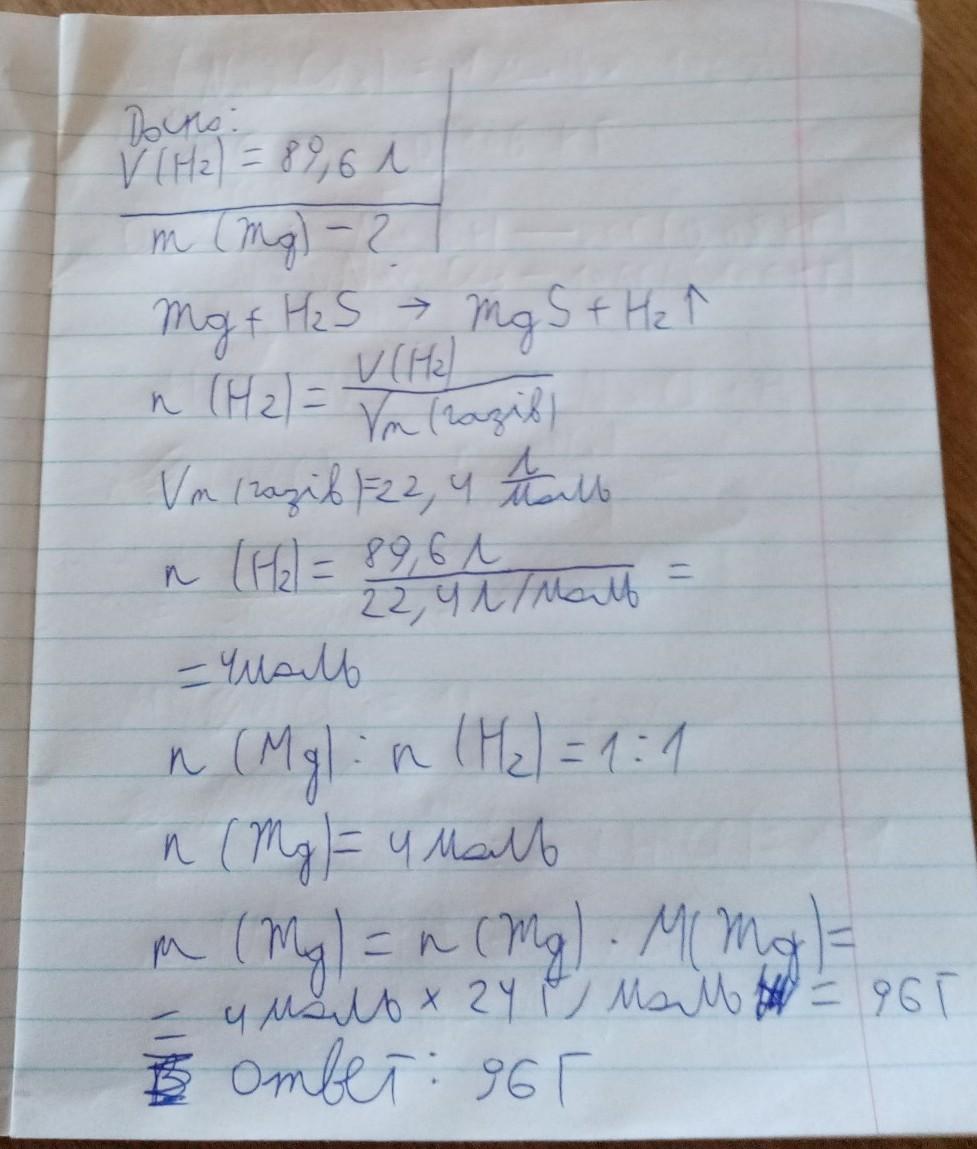 Дано:
V(H2) = 89,6 л
m (Mg) - ?
Mg + H2S → MgS + H2↑
n (H2) = V(H2) / Vm (газів)
Vm (газів) = 22,4 л/моль
n (H2) = 89,6 л / 22,4 л/моль =
= 4 моль
n (Mg) : n (H2) = 1 : 1
n (Mg) = 4 моль
m (Mg) = n (Mg) · M(Mg) =
= 4 моль × 24 г/моль = 96 г
Ответ: 96 г